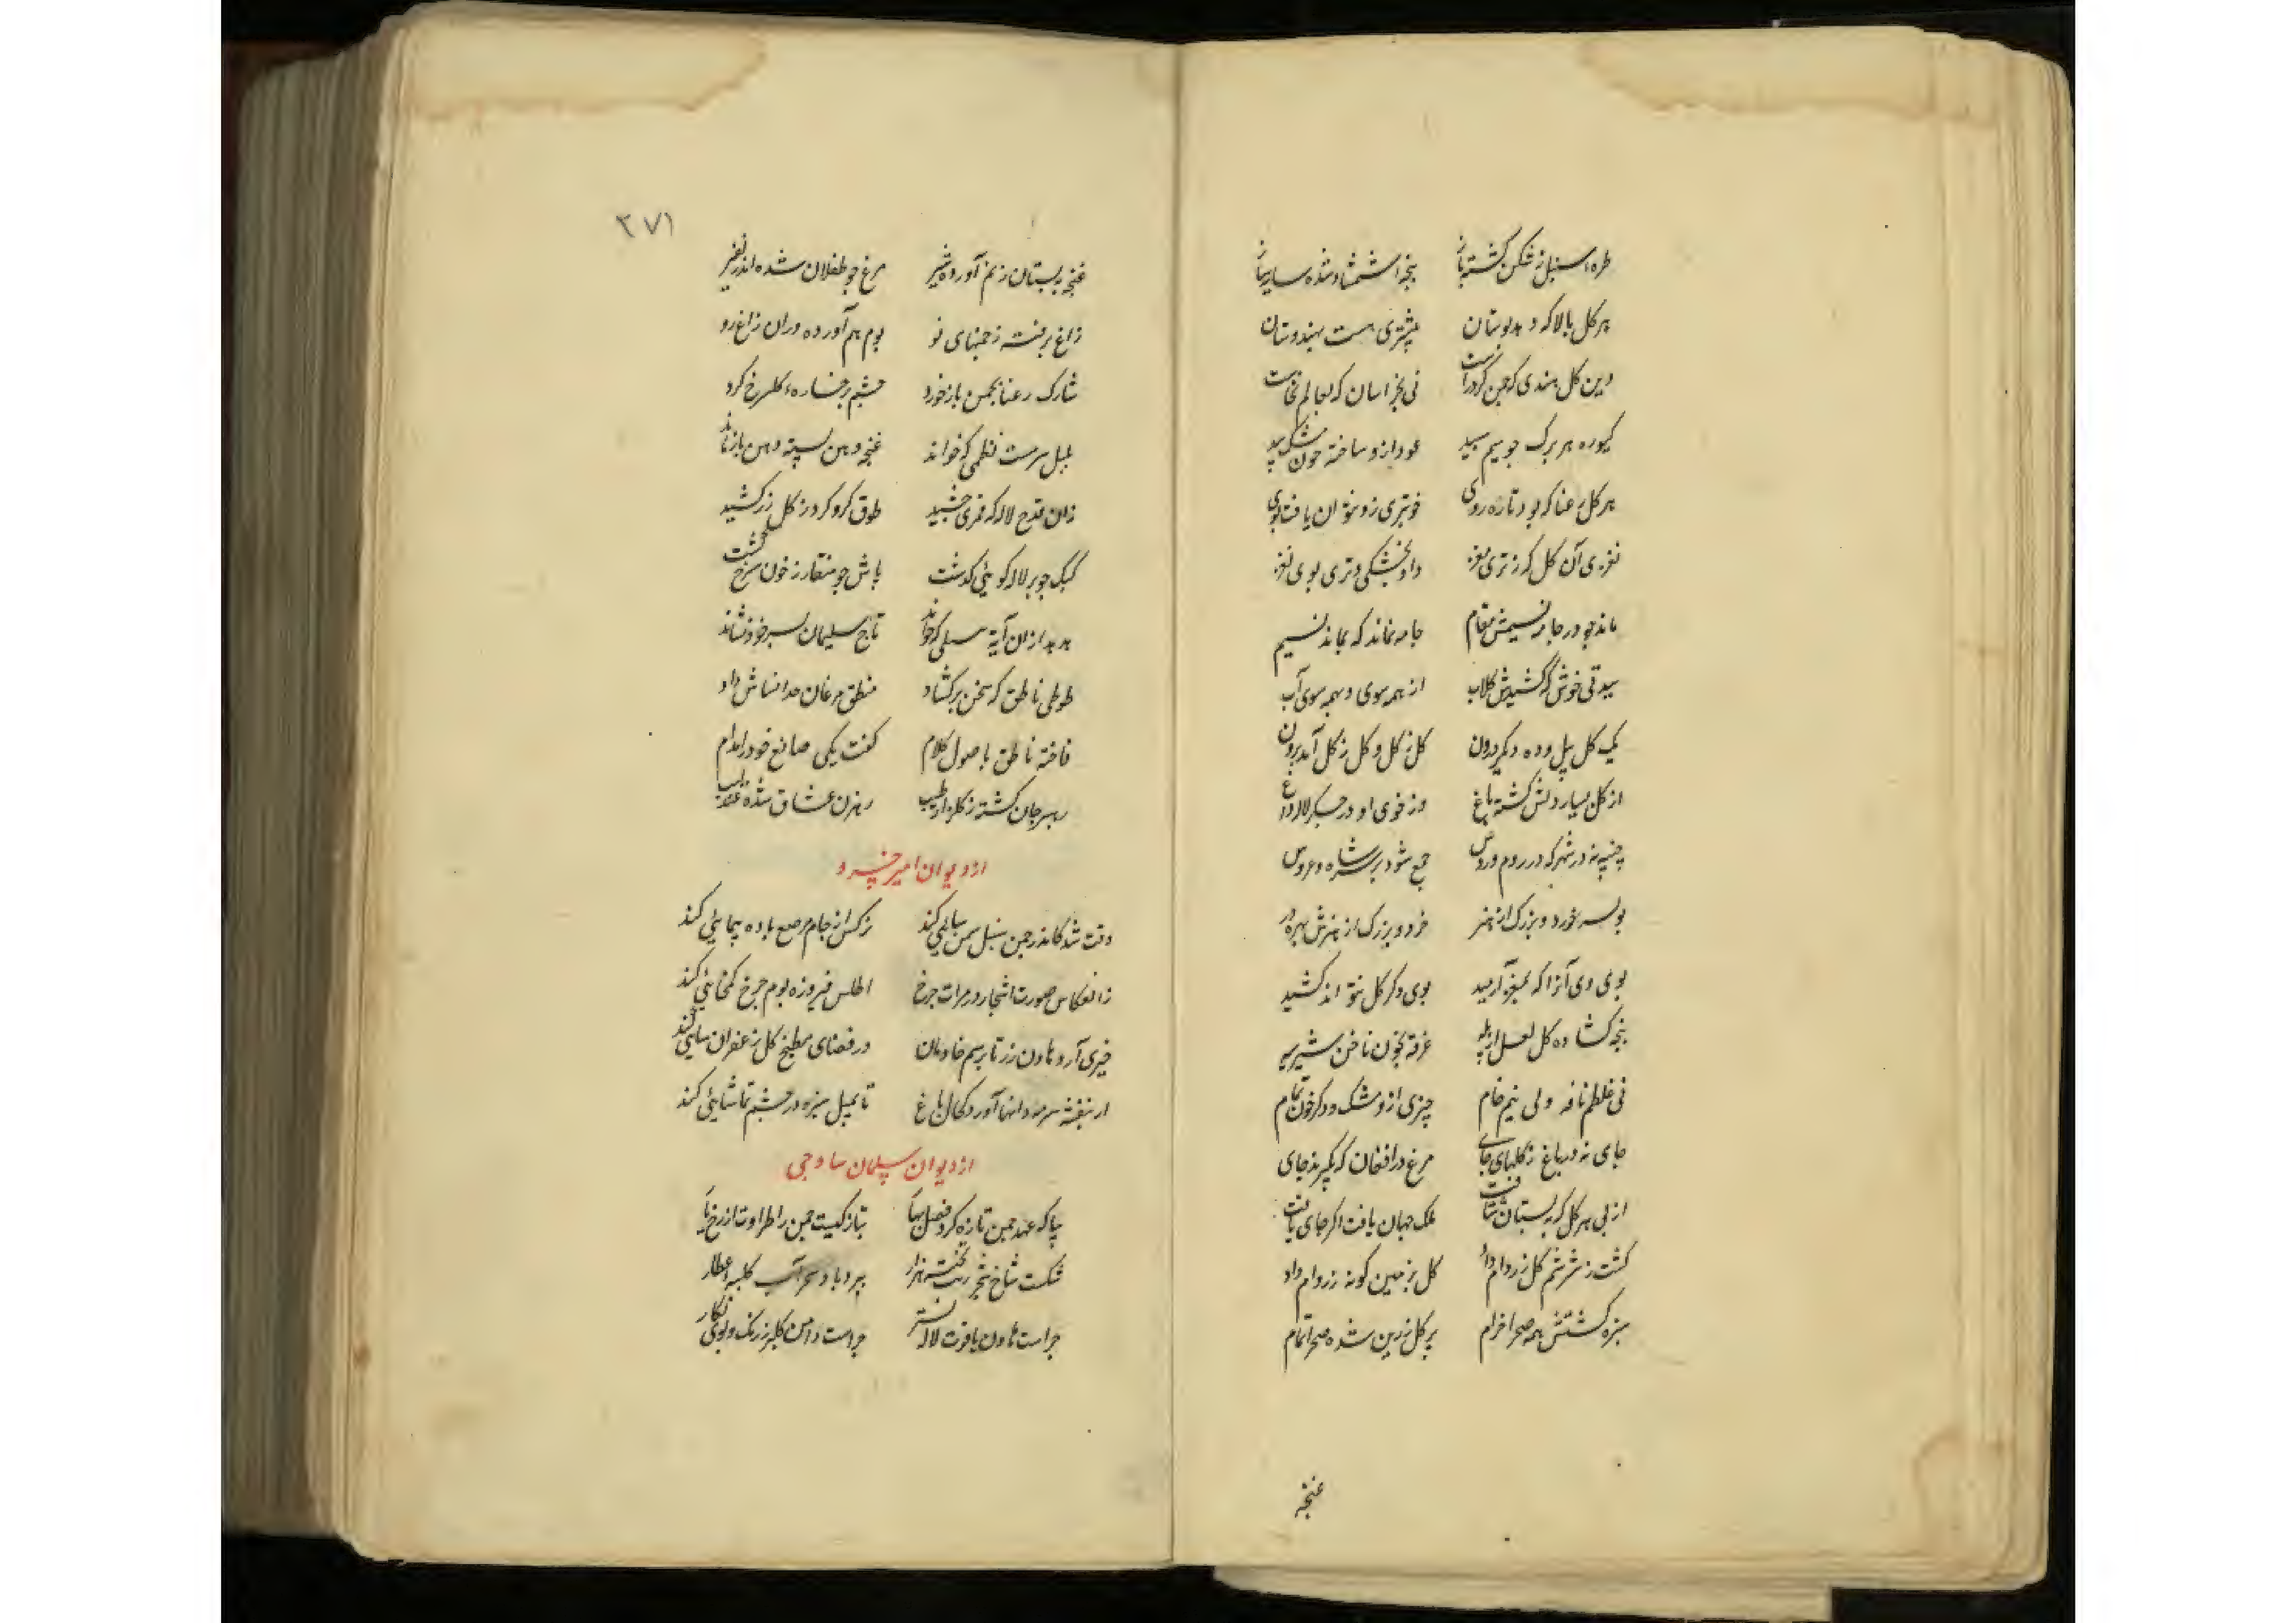 طرهٔ سنبل ز شکن گشته باز پنجه شمشاد شده سایه ساز
هر گل بالا که دمد بوستان مشتری هست بهندوستان
وین گل هندی که چمن کرد راست نی بخراسان که بعالم نخاست
کیوره هر برگ چو سیم سپید عود ازو ساخته خون مشک بید
هر گل رعنا که بود تازه روی خوبتری زو نتوان یافت بوی
نغزی آن گل که ز تری مغز داد بخشکی و تری بوی نغز
ماند چو در جامه نسیمش مقام جامه نماند که بماند نسیم
بید خوش که کشیدش گلاب از همه سوی و همه سوی آب
یک گل بیل و ده دیگر درون گل ز گل و گل ز گل آمد برون
از گل بسیار دلش گشته باغ وز خوی او در جگر لاله داغ
چنپه نه در شهر که در روم و روس جمع شود بر سر شاه و عروس
بولسر خورد و بزرگ از هنر خرد و بزرگ از هنرش بهره ور
بوی وی آنرا که بمغز آرمید بوی دگر گل نتواند کشید
پنجه گشاده گل لعل از پله غرقه بخون ناخن شیر یله
نی غلطم نافه ولی نیم خام چیزی ازو مشک و دگر خون تمام
جای نه در باغ ز گلهای جای مرغ در افغان که بگیرند جای
از پی هر گل که ببستان شتافت ملک جهان یافت اگر جای یافت
گشت ز شرم گل زر وام داد گل بزمین گونه زر وام داد
سبزه گشتش همه صحرا خرام بر گل زرین شده صحرا تمام
غنچه
۲۷۱
غنچه ببستان ز نم آورده شیر مرغ چو طفلان شده اندر نفیر
زاغ برفته ز چمنهای نو بوم هم آورده دران زاغ رو
شارک رعنا بچمن باز خورد چشم برخسارهٔ گل سرخ کرد
بلبل سرمست نظمی که خواند غنچه دهن بسته دهن باز ماند
زان قدح لاله که قمری چشید طوق گرو کرد ز گل زر کشید
کبک چو بر لاله کوئی گذشت پاش چو منقار ز خون سرخ گشت
هدهد ازان آیه سلمی که خواند تاج سلیمان بسر خود نشاند
طوطی ناطق که سخن برگشاد منطق مرغان خدا شاش داد
فاخته ناطق باصول کلام گفت یکی صانع خود را مدام
رهبر جان گشته ز گلزار طیب رهزن عشاق شده عندلیب
از دیوان امیر خسرو
وقت شد کاندر چمن سنبل سمن سائی کند نرگس از جام مرصع باده پیمائی کند
ز انعکاس صورت اشجار در مرات چرخ اطلس فیروزه بوم چرخ کمخائی کند
خیری آرد هاون زر تا برسم خادمان در فضای مطبخ گل زعفران سائی کند
از بنفشه سرمه دانها آورد کحال باغ تا بمیل سبزه در چشم تماشائی کند
از دیوان سلمان ساوجی
بیا که عهد چمن تازه کرد فصل بهار تبازگیست چمن را طراوت از رخ یار
شکست شاخ شجر رست تخته بزاز ببرد باد سحر آب کلبه عطار
چراست هاون یاقوت لاله نستر چراست دامن گل پر ز رنگ و بوی نگار